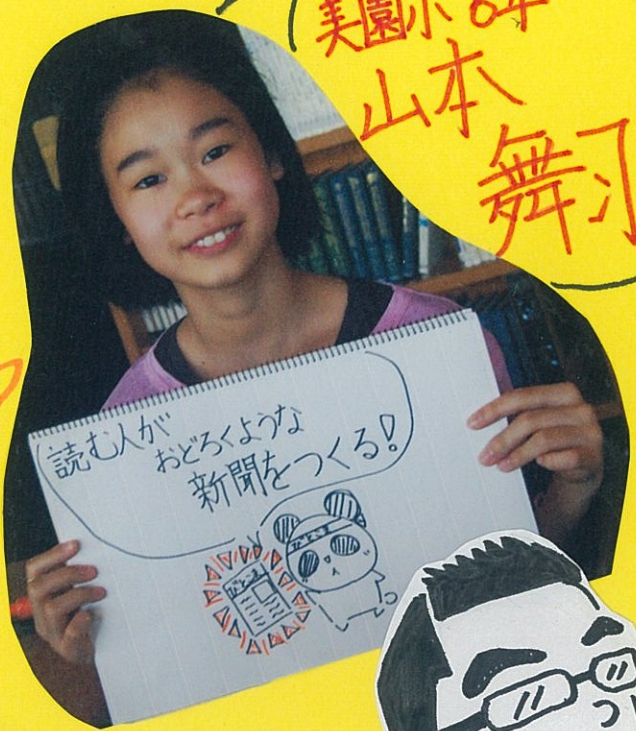 美園小6年
山本
舞
読む人が
おどろくような
新聞をつくる!